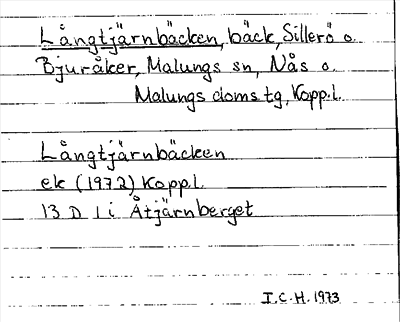 Långtjärnbäcken, bäck, Sillerö o.
Bjuråker, Malungs sn, Nås o.
Malungs doms.tg, Kopp.l.
Långtjärnbäcken
ek (1972) Kopp.l.
13 D 1 i Åtjärnberget
I.C.H. 1973